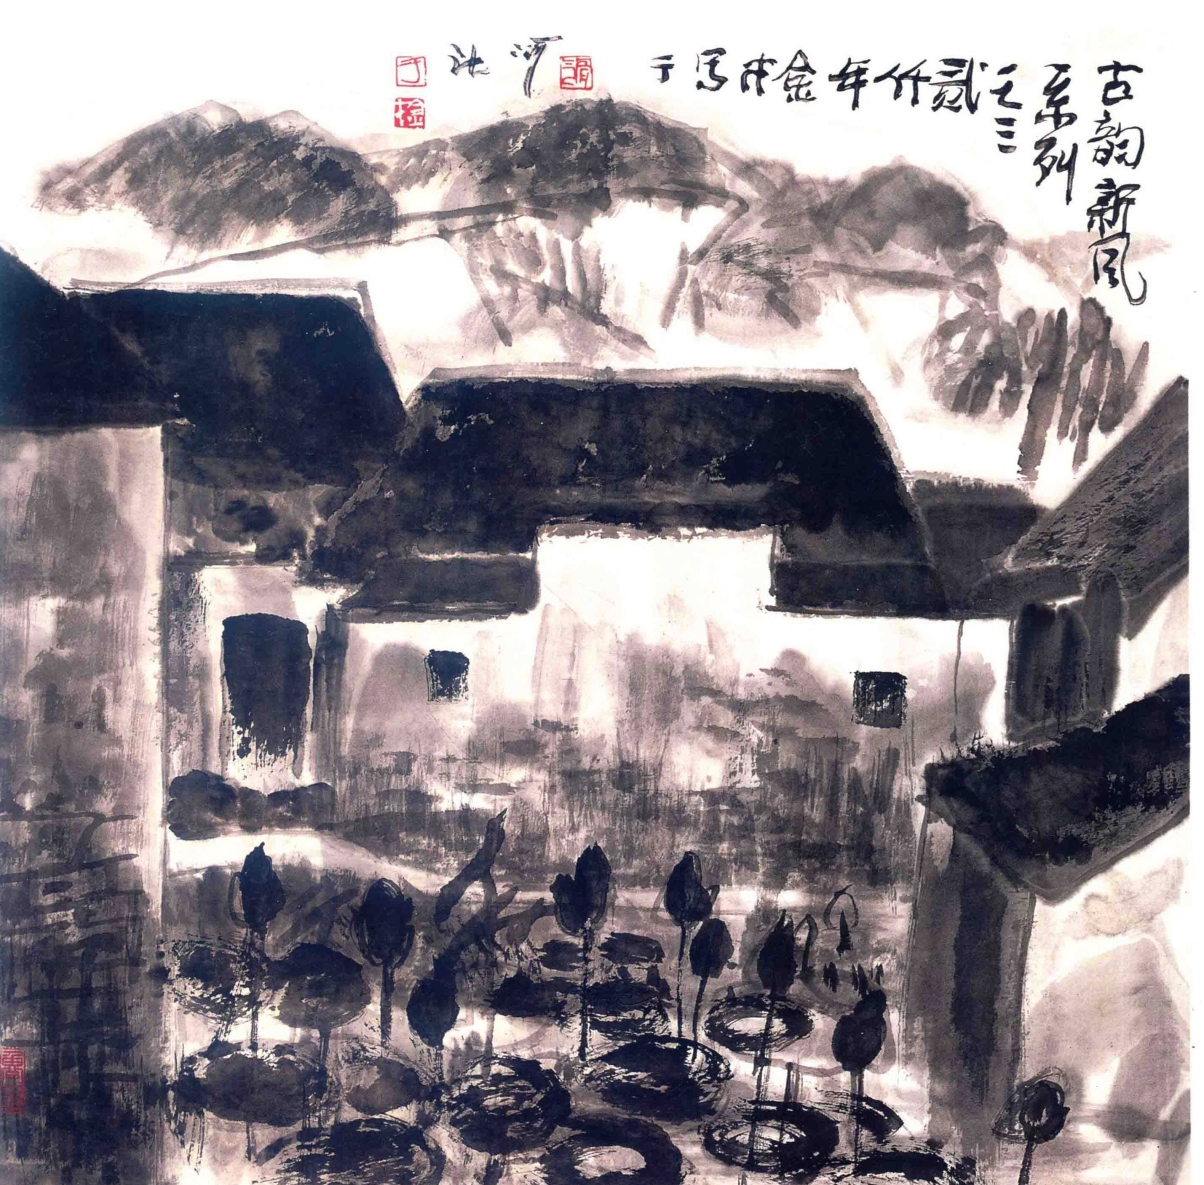 古韵新风
系列
之三
贰仟年金秋写于
河池